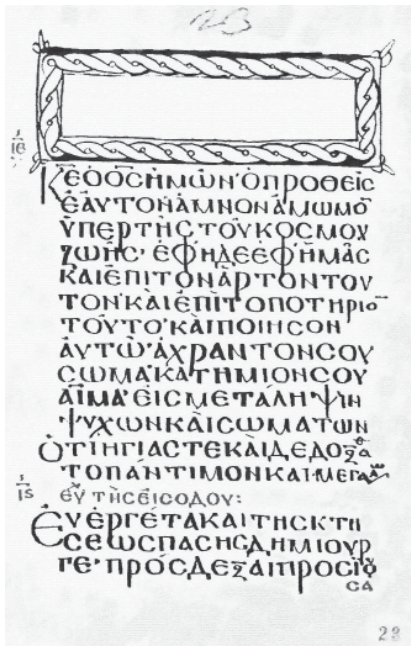 23
ΙΕ
ΚΕΟΘϹΗΜΩΝ·ΟΠΡΟΘΕΙϹ
ΕΑΥΤΟΝΑΜΝΟΝΑΜΩΜΟ
ΥΠΕΡΤΗϹΤΟΥΚΟϹΜΟΥ
ΖΩΗϹ·ΕΦΗΔΕΕΦΗΜΑϹ
ΚΑΙΕΠΙΤΟΝΑΡΤΟΝΤΟΥ
ΤΟΝ·ΚΑΙΕΠΙΤΟΠΟΤΗΡΙΟ
ΤΟΥΤΟ·ΚΑΙΠΟΙΗϹΟΝ
ΑΥΤΩ·ΑΧΡΑΝΤΟΝϹΟΥ
ϹΩΜΑ·ΚΑΤΗΜΙΟΝϹΟΥ
ΑΙΜΑ·ΕΙϹΜΕΤΑΛΗΨΙΝ
ΨΥΧΩΝΚΑΙϹΩΜΑΤΩΝ
ΟΤΙΗΓΙΑϹΤΕΚΑΙΔΕΔΟΞΑ
ΤΟΠΑΝΤΙΜΟΝΚΑΙΜΕΓΑΛ
ΙϚ ΕΥ ΤΗϹΕΙϹΟΔΟΥ:
ΕΥΕΡΓΕΤΑΚΑΙΤΗϹΚΤΙ
ϹΕΩϹΠΑϹΗϹΔΗΜΙΟΥΡ
ΓΕ·ΠΡΟϹΔΕΞΑΙΠΡΟϹΙΟΥ
ϹΑ
23